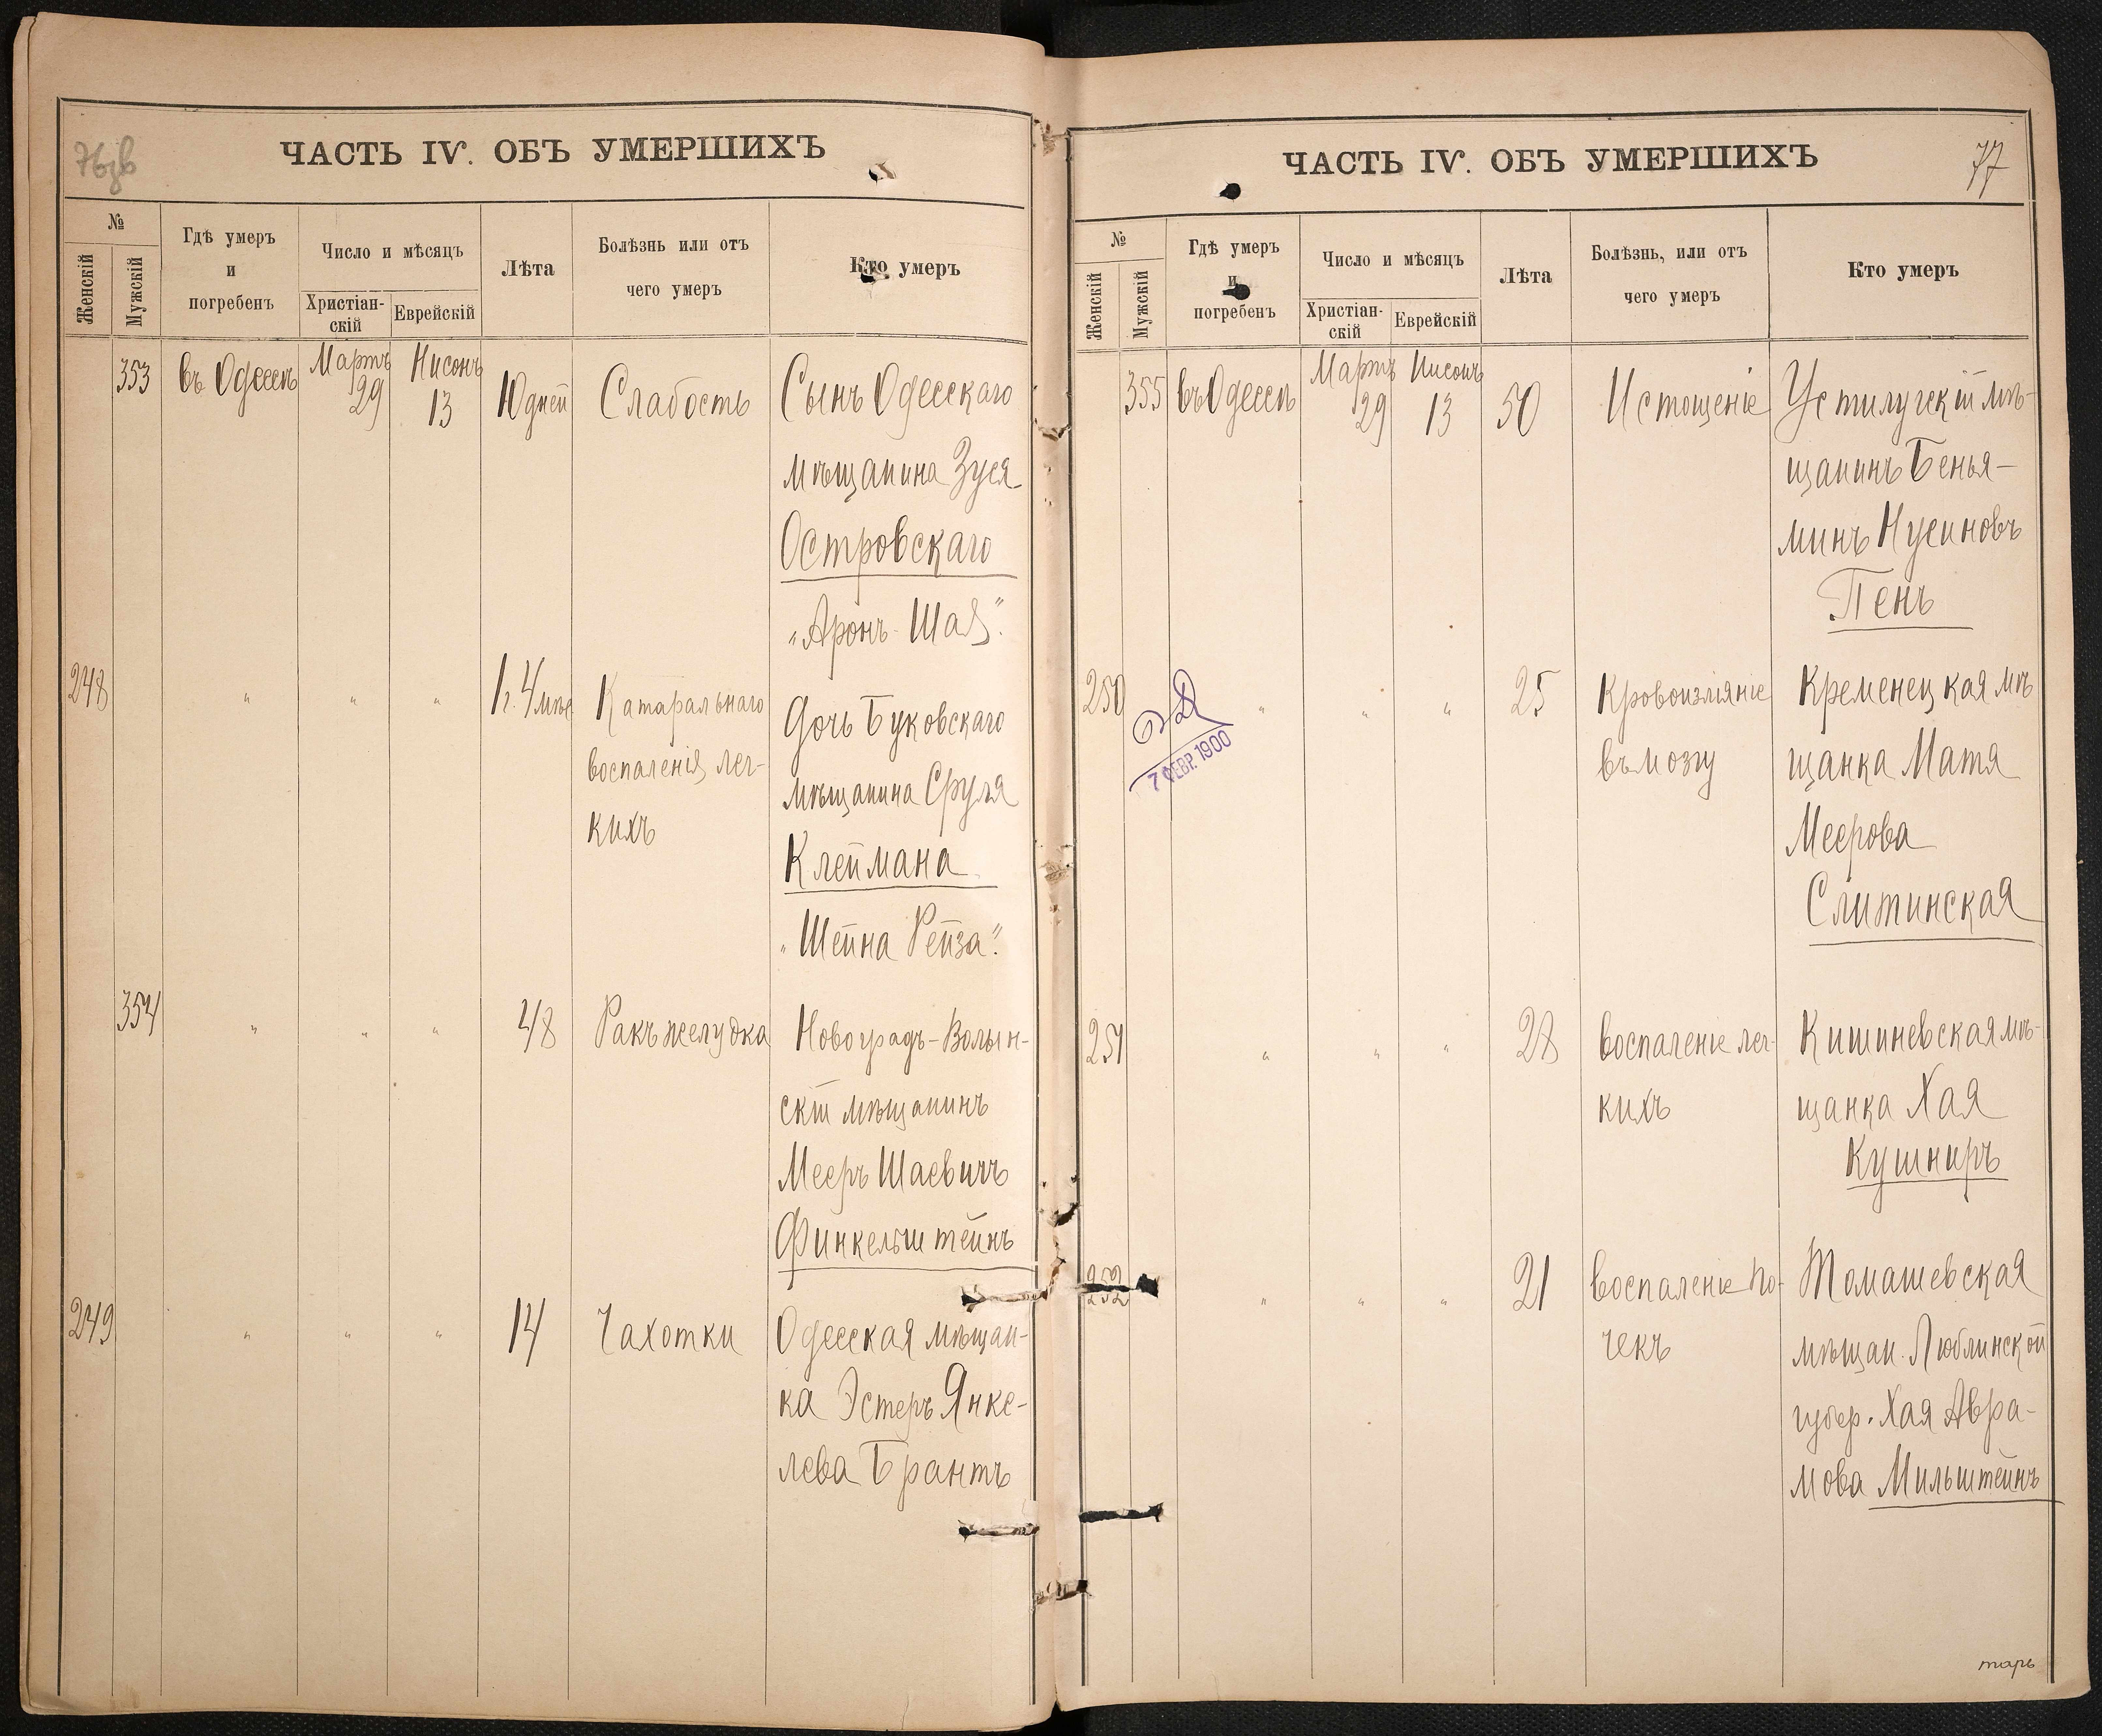 76зв
ЧАСТЬ IV. ОБЪ УМЕРШИХЪ
№
Женскій
Мужскій
Гдѣ умеръ
и
погребенъ
Число и мѣсяцъ
Христіан-
скій
Еврейскій
Лѣта
Болѣзнь или отъ
чего умеръ
Кто умеръ
353 въ Одессѣ Мартъ 29 Нисонъ 13 10 дней Слабость Сынъ Одесскаго
мѣщанина Зуся
Островскаго
„Аронъ-Шая".
248 " " " 1 г. 4 мѣс Катаральнаго Дочь Буковскаго
воспаленія лег- мѣщанина Сруля
кихъ Клеймана
„Шейна Рейза".
354 " " " 48 Ракъ желудка Новоградъ-Волын-
скій мѣщанинъ
Мееръ Шаевичъ
Финкельштейнъ
249 " " " 14 Чахотки Одесская мѣщан-
ка Эстеръ Янке-
лева Брантъ
77
ЧАСТЬ IV. ОБЪ УМЕРШИХЪ
№
Женскій
Мужскій
Гдѣ умеръ
и
погребенъ
Число и мѣсяцъ
Христіан-
скій
Еврейскій
Лѣта
Болѣзнь, или отъ
чего умеръ
Кто умеръ
355 въ Одессѣ Мартъ 29 Нисонъ 13 50 Истощеніе Устилугскій мѣ-
щанинъ Бенья-
минъ Нусиновъ
Пенъ
250 " " " 25 Кровоизліяніе Кременецкая мѣ
въ мозгу щанка Матя
Меерова
Слитинская
7 ФЕВР. 1900
251 " " " 28 воспаленіе лег- Кишиневская мѣ-
кихъ щанка Хая
Кушниръ
252 " " " 21 воспаленіе по- Томашевская
чекъ мѣщан. Люблинской
губер. Хая Авра-
мова Мильштейнъ
тарь